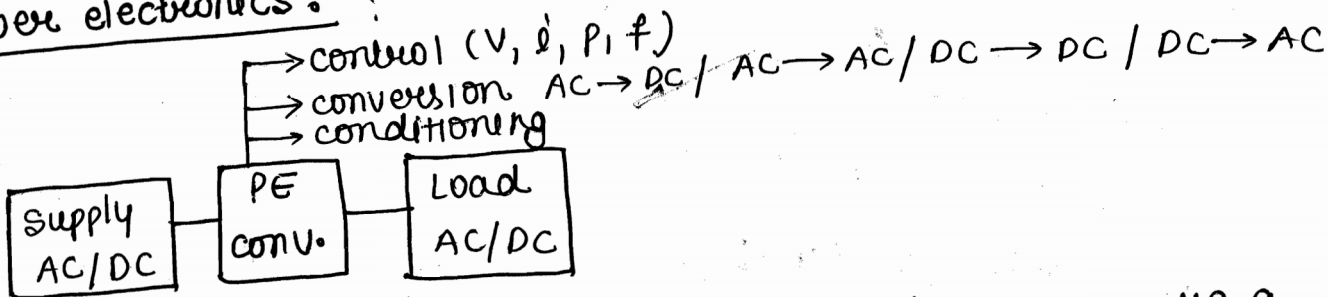 electronics :
→ control (V, i, P, f)
→ conversion AC → DC / AC → AC / DC → DC / DC → AC
→ conditioning
Supply
AC/DC
PE
conv.
Load
AC/DC